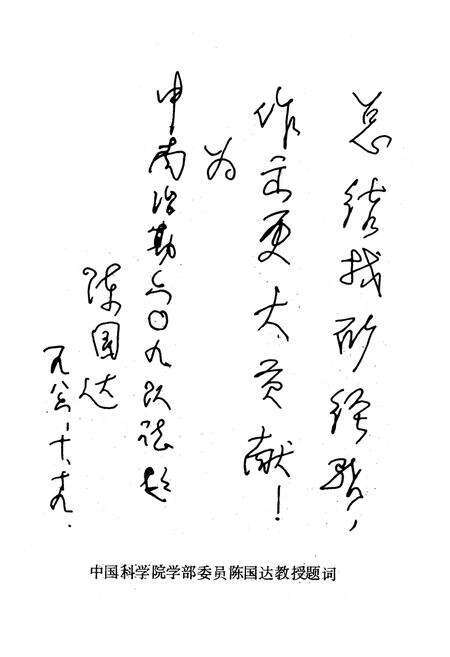 总结找矿经验，
作出更大贡献！
为
中南冶勘六〇九队题
陈国达
一九八六、十、十九.
中国科学院学部委员陈国达教授题词